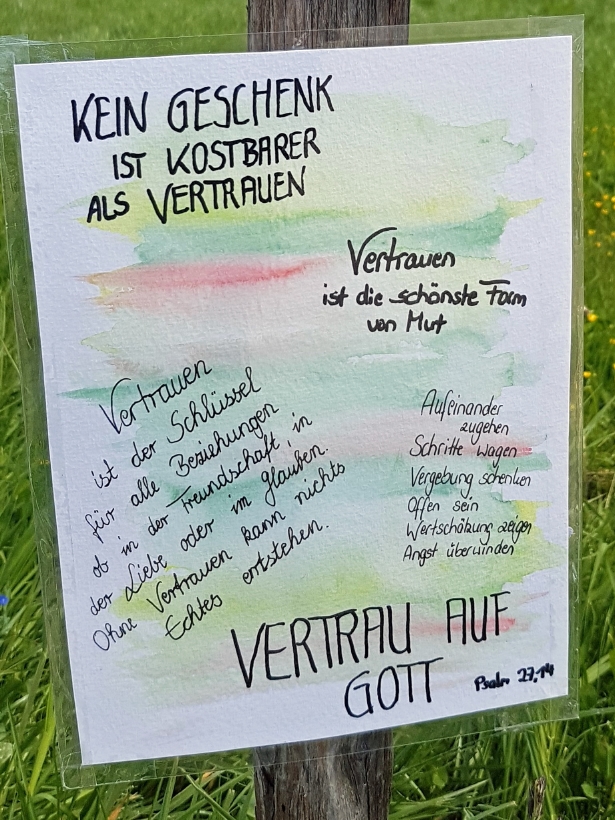 KEIN GESCHENK
IST KOSTBARER
ALS VERTRAUEN
Vertrauen
ist die schönste Form
von Mut
Vertrauen
ist der Schlüssel
für alle Beziehungen
ob in der Freundschaft, in
der Liebe oder im Glauben.
Ohne Vertrauen kann nichts
Echtes entstehen.
Aufeinander
zugehen
Schritte wagen
Vergebung schenken
Offen sein
Wertschätzung zeigen
Angst überwinden
VERTRAU AUF
GOTT
Psalm 27,14